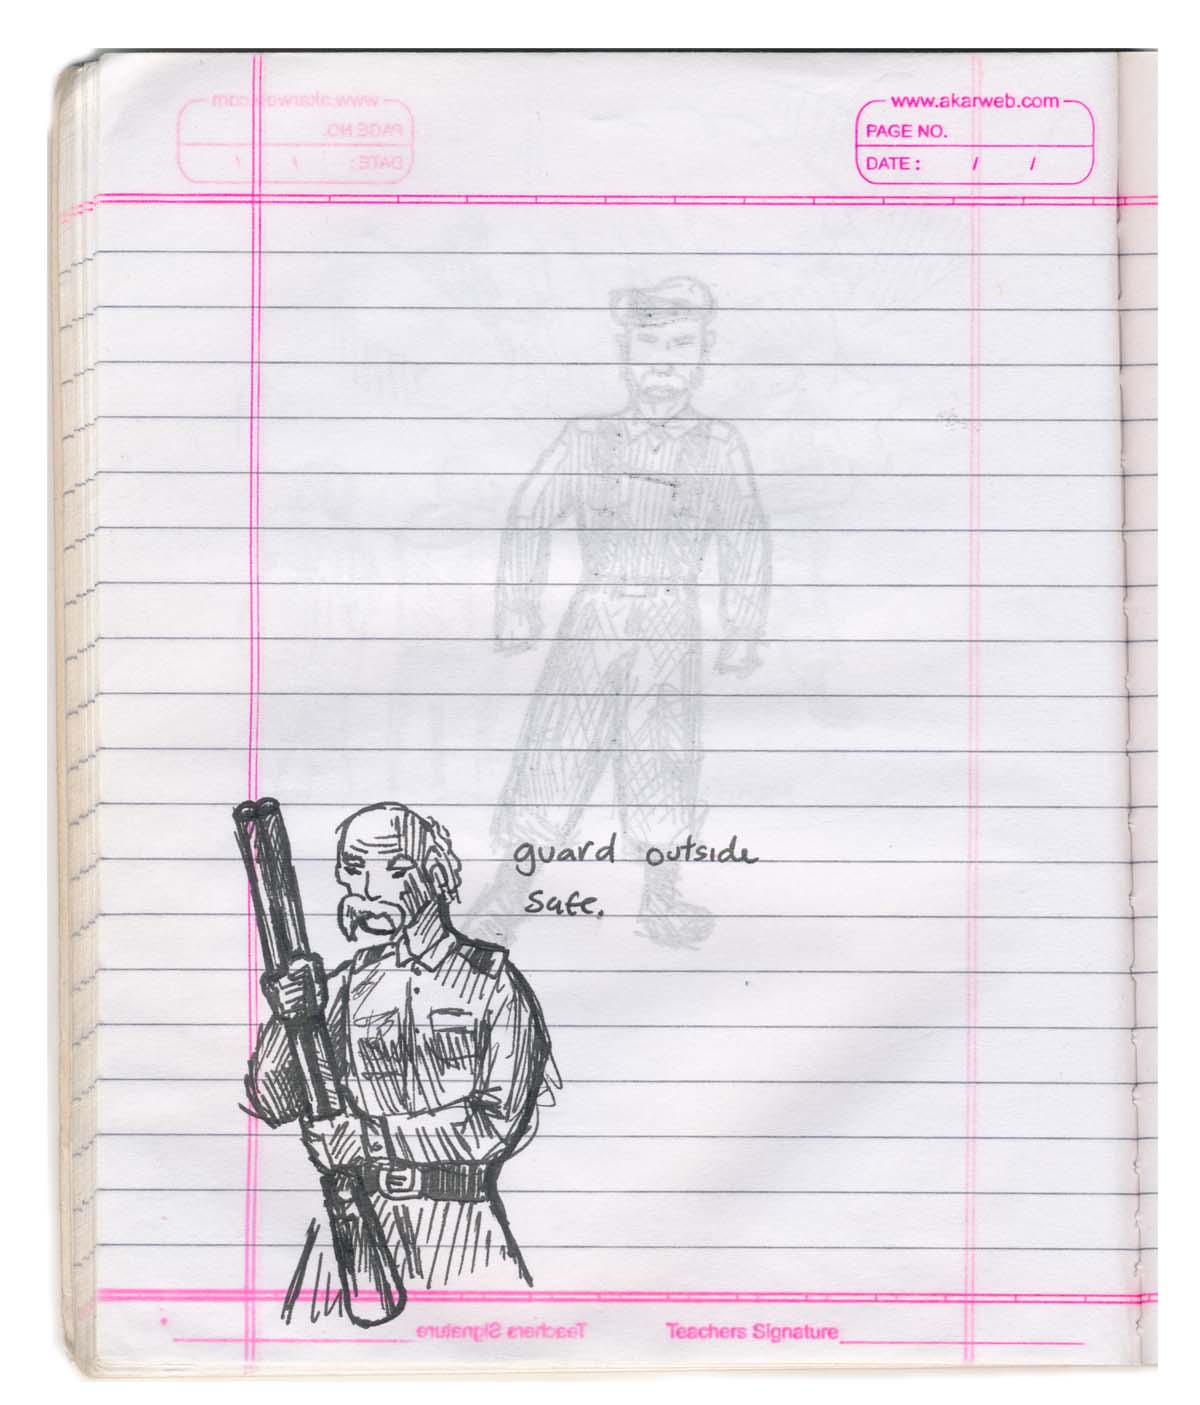 www.akarweb.com
PAGE NO.
DATE : / /
guard outside
safe.
Teachers Signature